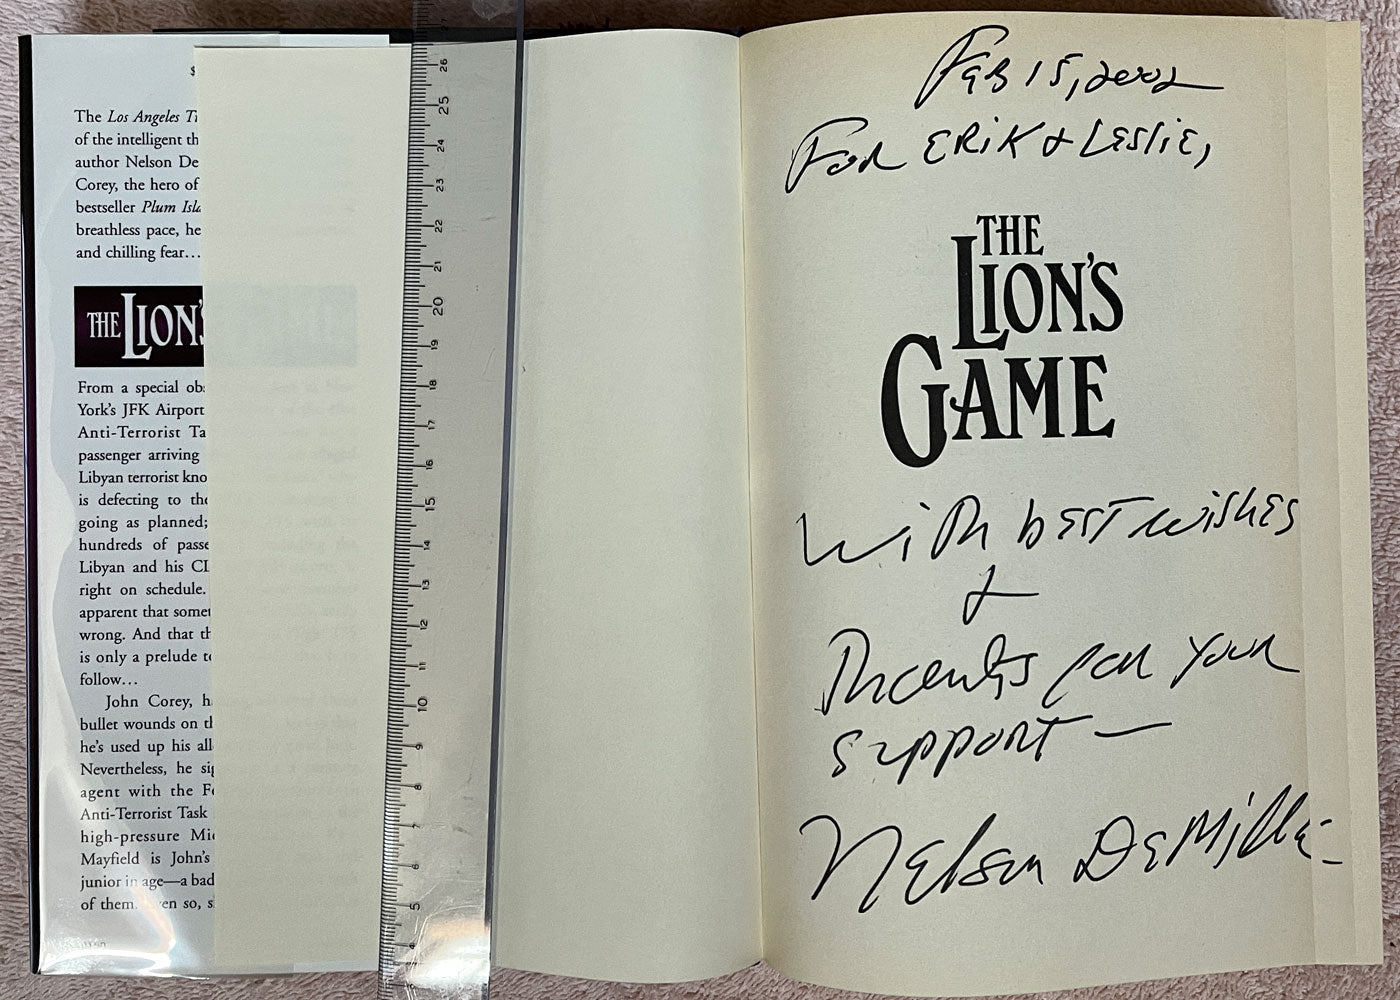 $
The Los Angeles Ti
of the intelligent th
author Nelson De
Corey, the hero of
bestseller Plum Isla
breathless pace, he
and chilling fear…
THE LION'S
From a special obs
York's JFK Airport
Anti-Terrorist Ta
passenger arriving
Libyan terrorist kno
is defecting to the
going as planned;
hundreds of passe
Libyan and his CI
right on schedule.
apparent that somet
wrong. And that th
is only a prelude to
follow…
John Corey, h
bullet wounds on th
he's used up his all
Nevertheless, he sig
agent with the Fe
Anti-Terrorist Task
high-pressure Mid
Mayfield is John's
junior in age—a bad
of them. Even so, s
26
25
24
23
22
21
20
19
18
17
16
15
14
13
12
11
10
9
8
7
6
5
4
Feb 15, 2002
For ERiK & LESLiE,
THE
LION'S
GAME
With best wishes
&
Thanks for your
support —
Nelson DeMille